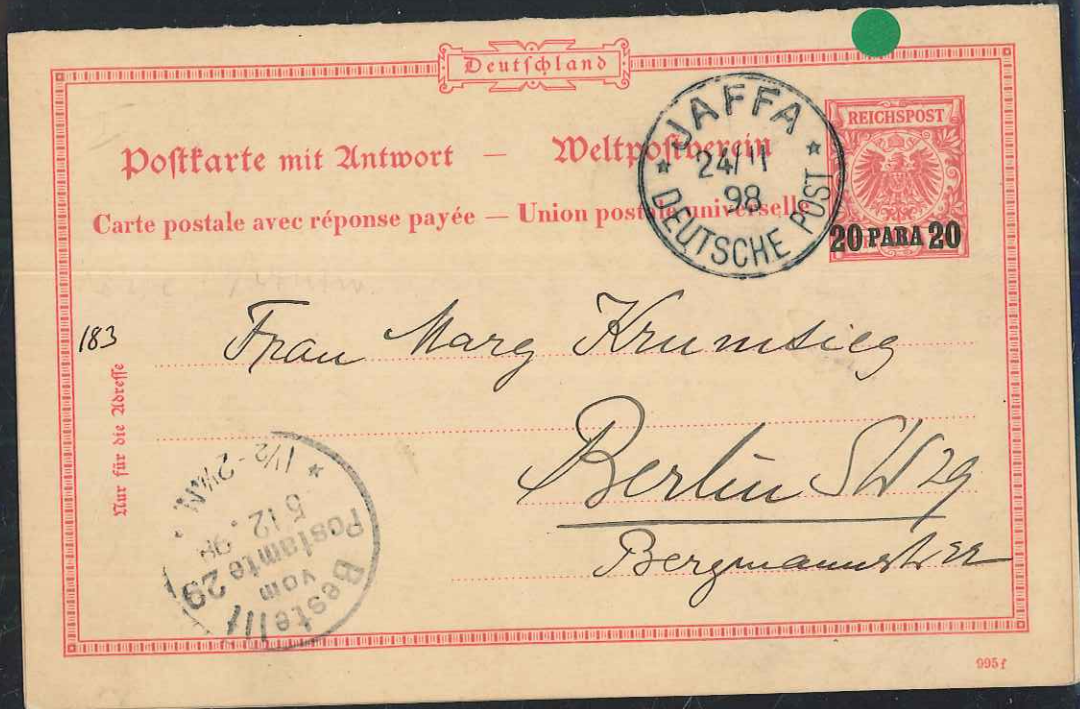 Deutschland
Postkarte mit Antwort — Weltpostverein
Carte postale avec réponse payée — Union postale universelle
JAFFA
24/11
98
DEUTSCHE POST
REICHSPOST
20 PARA 20
183
Nur für die Adresse
Frau Marg Krumsieg
Berlin SW 29
Bergmannstr 22
Bestellt
vom
Postamte 29
5 12. 98
1½-2¼N.
995f